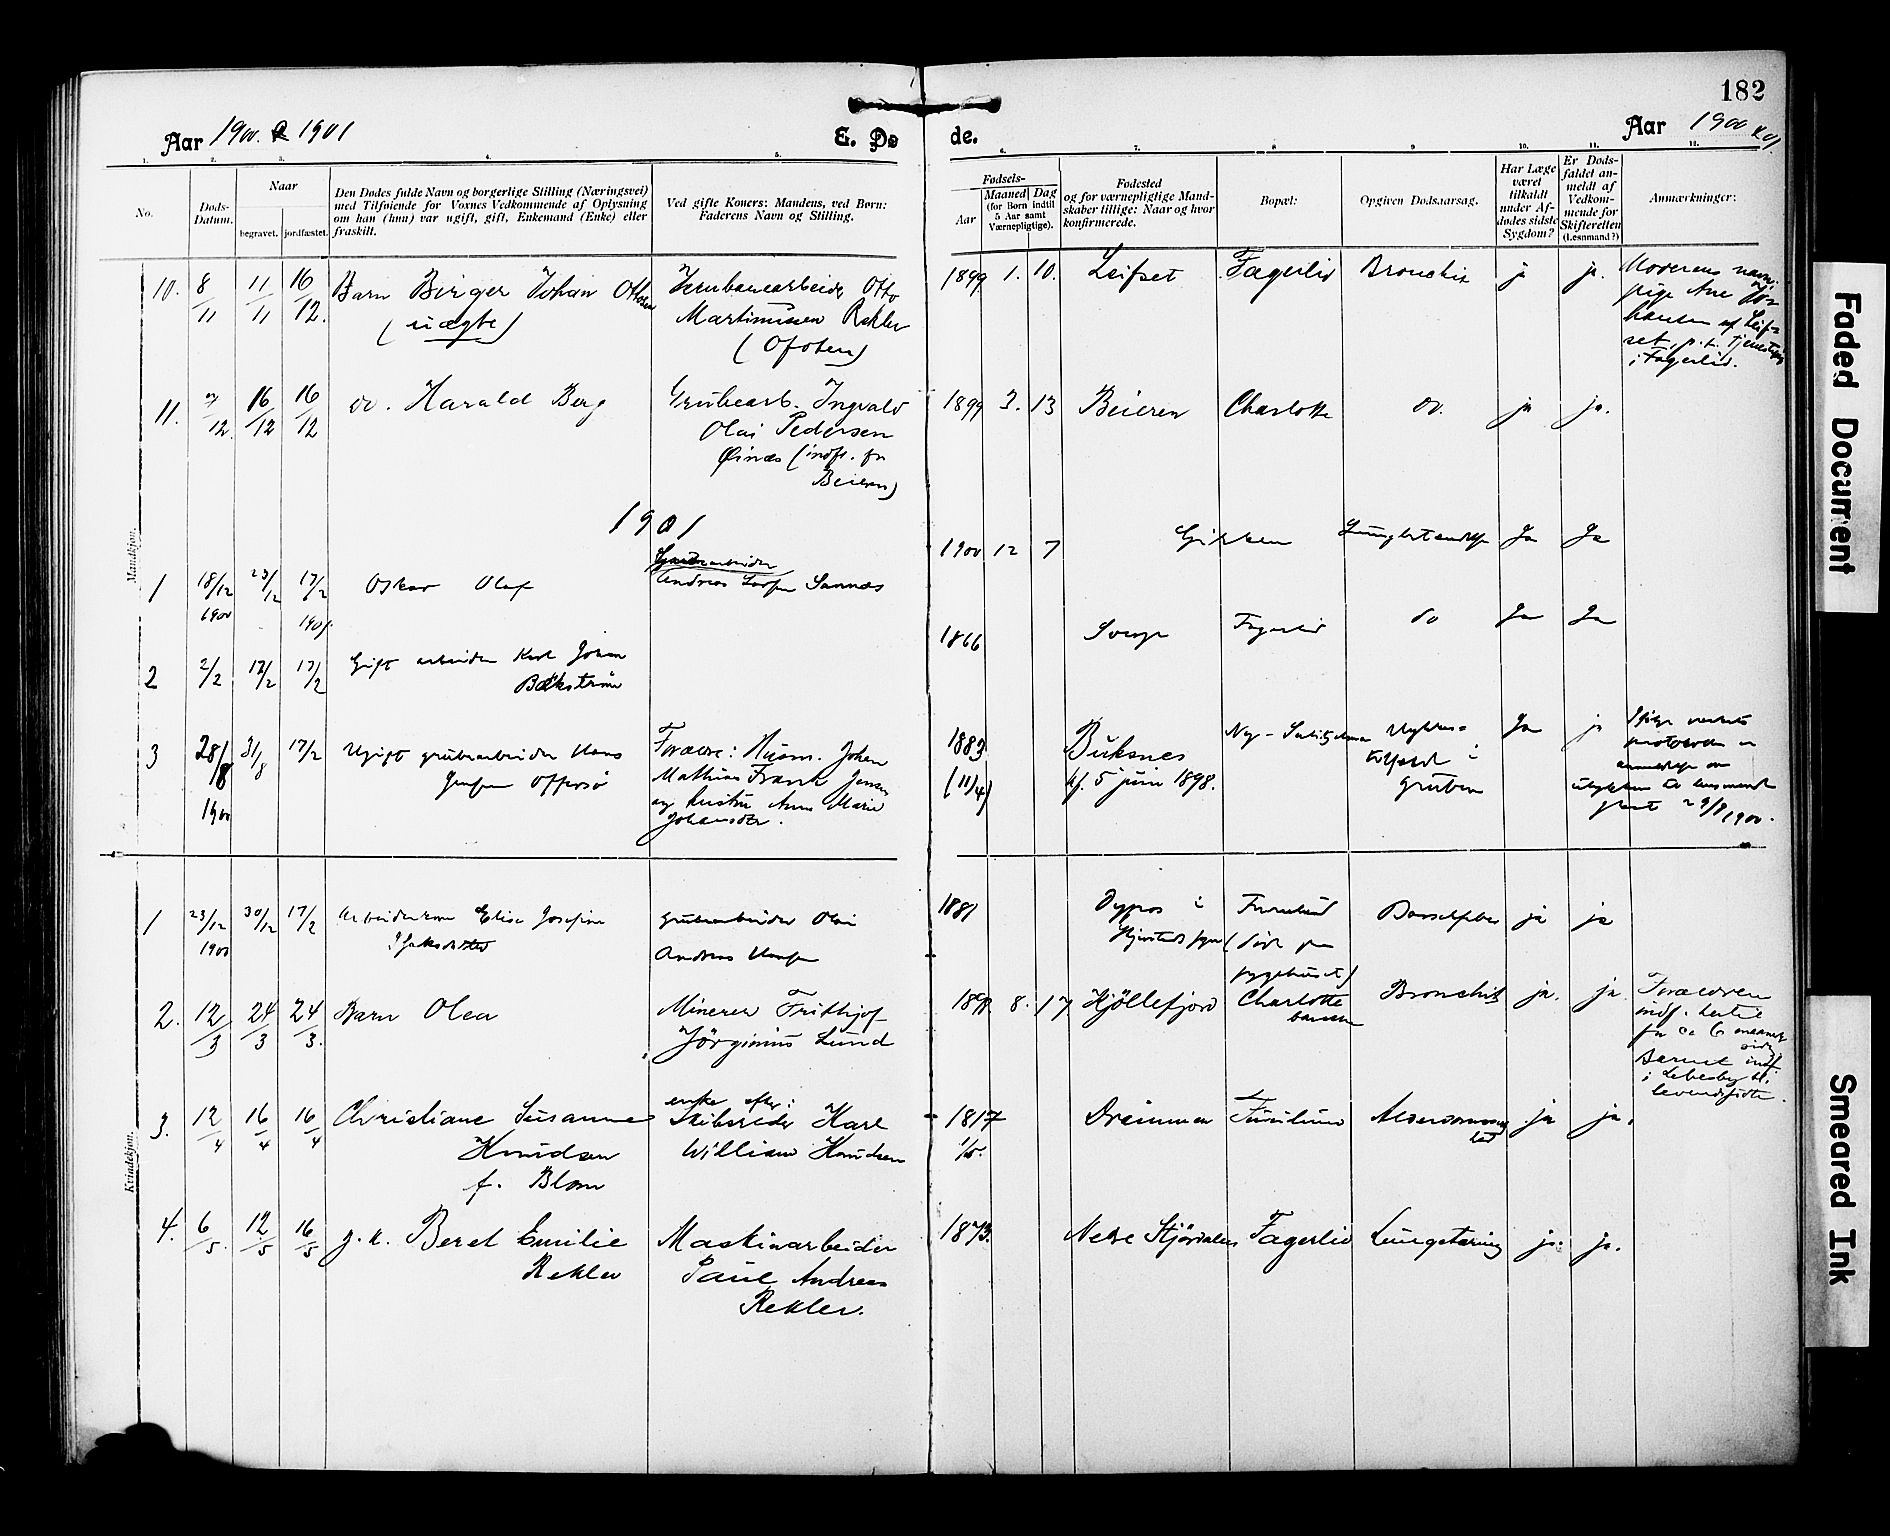 182
Aar 1900 & 1901
E. Døde.
Aar 1900 & 01
1. 2. 3. 4. 5. 6. 7. 8 9 10. 11. 12.
No.
Døds-
Datum.
Naar
begravet. jordfæstet.
Den Dødes fulde Navn og borgerlige Stilling (Næringsvei)
med Tilføiende for Voxnes Vedkommende af Oplysning
om han (hun) var ugift, gift, Enkemand (Enke) eller
fraskilt.
Ved gifte Koner: Mandens, ved Børn:
Faderens Navn og Stilling.
Fødsels-
Aar
Maaned Dag
(for Børn indtil
5 Aar samt
Værnepligtige).
Fødested
og for værnepligtige Mand-
skaber tillige: Naar og hvor
konfirmerede.
Bopæl:
Opgiven Dødsaarsag.
Har Læge
været
tilkaldt
under Af-
dødes sidste
Sygdom?
Er Døds-
faldet an-
meldt af
Vedkom-
mende for
Skifteretten
(Lensmand?)
Anmærkninger:
Mandkjøn.
10. 8/11 11/11 16/12. Barn Birger Johan Ottosen Jernbanearbeider Otto 1899 1. 10. Leifset Fagerlid Bronchit ja ja. Moderens navn:
(uægte) Martinusen Rekler pige Ane
(Ofoten) af Leif-
set, p.t. Tjenestepige
i Fagerlid.
11. /12. 16/12 16/12 do. Harald Berg Grubearb. Ingvald 1899 3. 13 Beieren Charlotte do. ja ja.
Olai Pedersen
Øinæs (indfl. fra
Beieren)
1901
1 18/12 23/12 17/2 Oskar Olaf Grubearbeider 1900 12 7 Gikken Ja Ja
1900 1901. Andreas Larsen Sannæs
2 2/2 12/2 17/2 Gift arbeider Karl Johan 1866 Sverge Fagerlid do Ja Ja
Bækström
3 28/8 31/8 17/2 Ugift grubearbeider Hans Forældre: Husm. Johan 1883 Buksnes Ny-Sulitjelma Ulykkes- Ja ja
1900 Jensen Mathias Frank Jensen (11/4) kf. 5 juni 1898. tilfælde i
og hustru Anne Marie gruben
Johansdtr. 29/8 1900.
Kvindekjøn.
1 23/12 30/12 17/2 Arbeiderkone Elise Josefine grubearbeider Olai 1881 i Furulund Barselfeber ja ja
1900 Isaksdatter Andreas Hansen (død paa
sygehuset)
2. 12/3 24/3 24/3. Barn Olea Minerer Frithjof 8. 17 Kjöllefjord Charlotte Bronchit ja. ja. Forældrene
Jörginius Lund indf. hertil
for ca 6 maaneder
siden
Barnet indf.
i Lebesby
levendefødte.
3. 12/4 16/4 16/4 Christiane Susanne enke efter: 1817 Drammen Furulund Alderdomssvag ja ja.
Knudsen Skibsreder Karl 1/5. hed
f. Blom William Knudsen
4. 6/5. 12/5 16/5 g.k. Beret Emilie Maskinarbeider 1873. Nedre Stjördalen Fagerlid Lungetæring ja. ja.
Rekler Paul Andreas
Rekler.
Faded Document
Smeared Ink